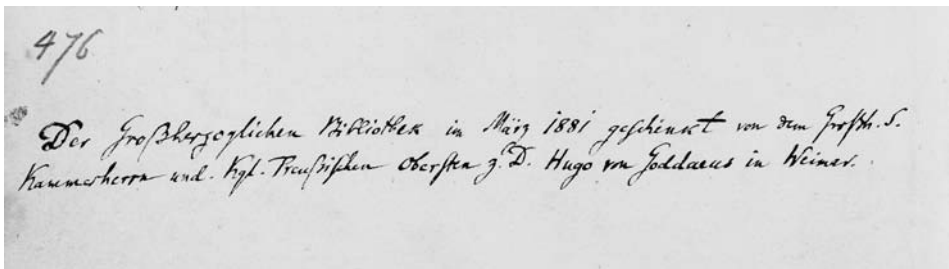 476
Der Großherzoglichen Bibliothek im März 1881 geschenkt von dem Großh. S.
Kammerherrn und. Kgl. Preußischen Obersten z. D. Hugo von Goddaeus in Weimar.